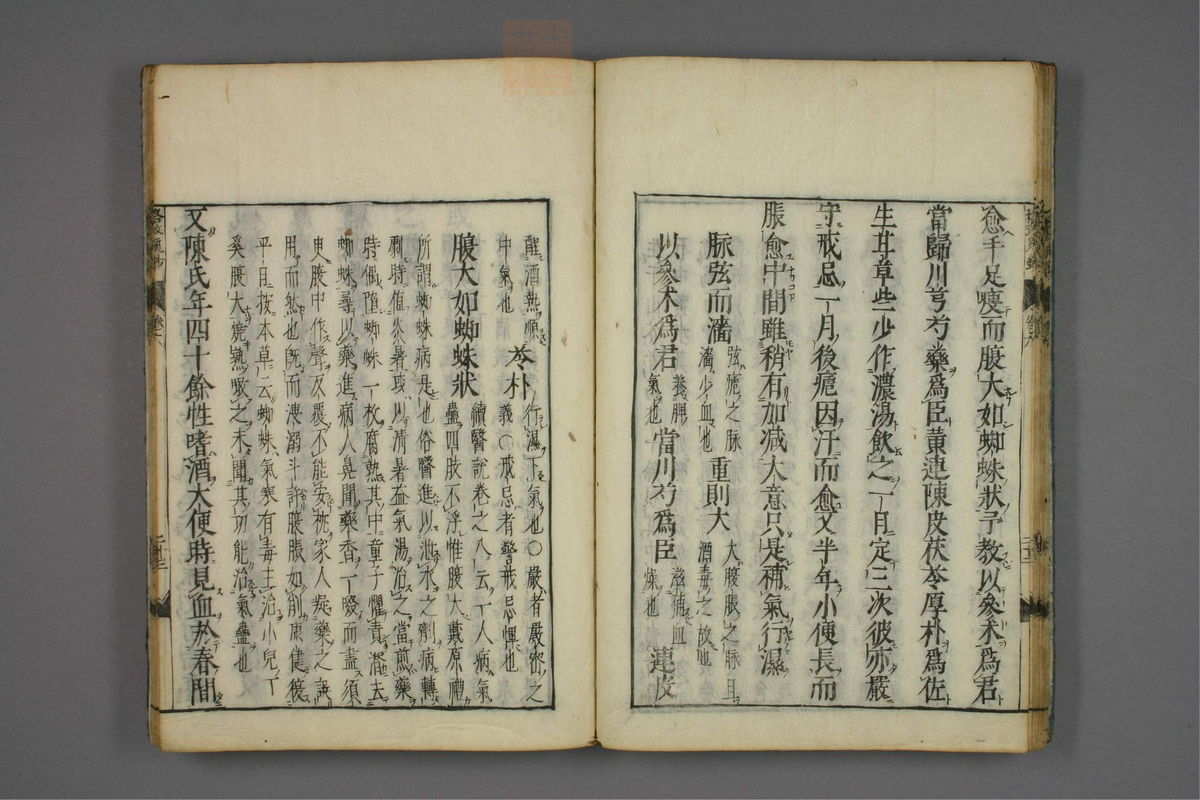 愈手足瘦而腹大如蜘蛛狀予教以參朮爲君
當歸川芎芍藥爲臣黄連陳皮茯苓厚朴爲佐
生甘草些少作濃湯飲之一日定三次彼亦嚴
守戒忌一月後瘧因汗而愈又半年小便長而
脹愈中間雖稍有加减大意只是補氣行濕
脉弦而濇 弦瘧之脉 濇少血也 重則大 大腹脹之脉且 酒毒之故也
以參朮爲君 養脾 氣也 當川芍爲臣 滋補血 燥也 連皮
醒酒熱順
中氣也 苓朴 行濕下氣也○嚴者嚴密之
義○戒忌者警戒忌憚也
腹大如蜘蛛狀 續醫說卷之八云一人病氣
蠱四肢不浮惟腹大戴原禮
所謂蜘蛛病是也俗醫進以泄水之劑病轉
劇時值炎暑或以清暑益氣湯治之當煎藥
時偶墮蜘蛛一枚腐熟其中童子懼責潛去
蜘蛛尋以藥進病人鼻聞藥香一啜而盡須
臾腹中作聲反覆不能安枕家人疑藥之誤
用而然也既而溲溺斗許腹脹如削康健後
平且按本草云蜘蛛氣寒有毒主治小兒丁
奚腹大煨熟噉之未聞其功能治氣蠱也
又陳氏年四十餘性嗜酒大便時見血於春間